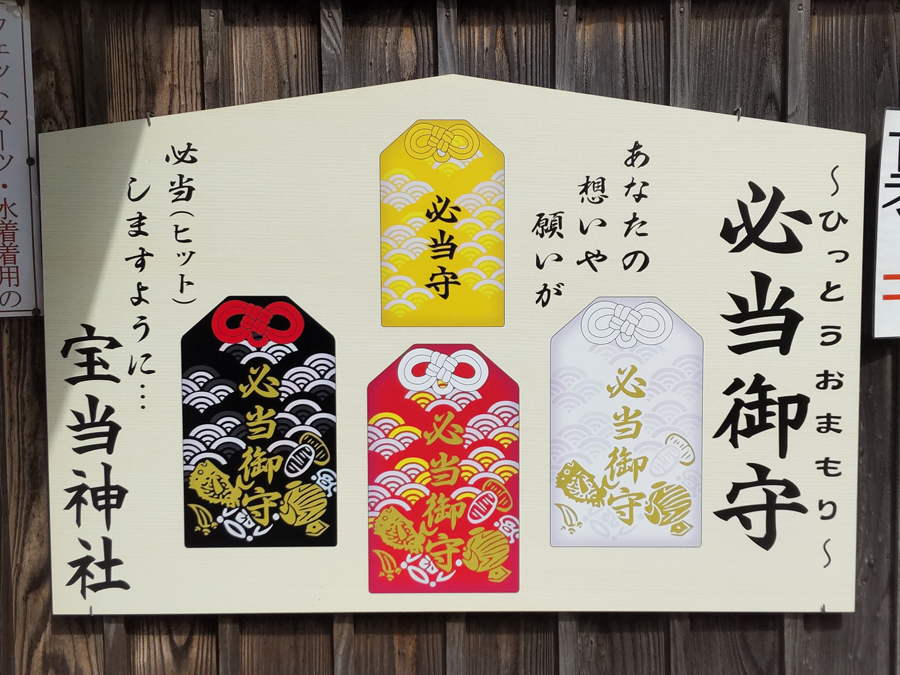 ～ひっとうおまもり～
必当御守
あなたの
想いや
願いが
必当守
必当御守
必当御守
必当御守
必当(ヒット)
しますように…
宝当神社
ウェットスーツ・
水着着用の